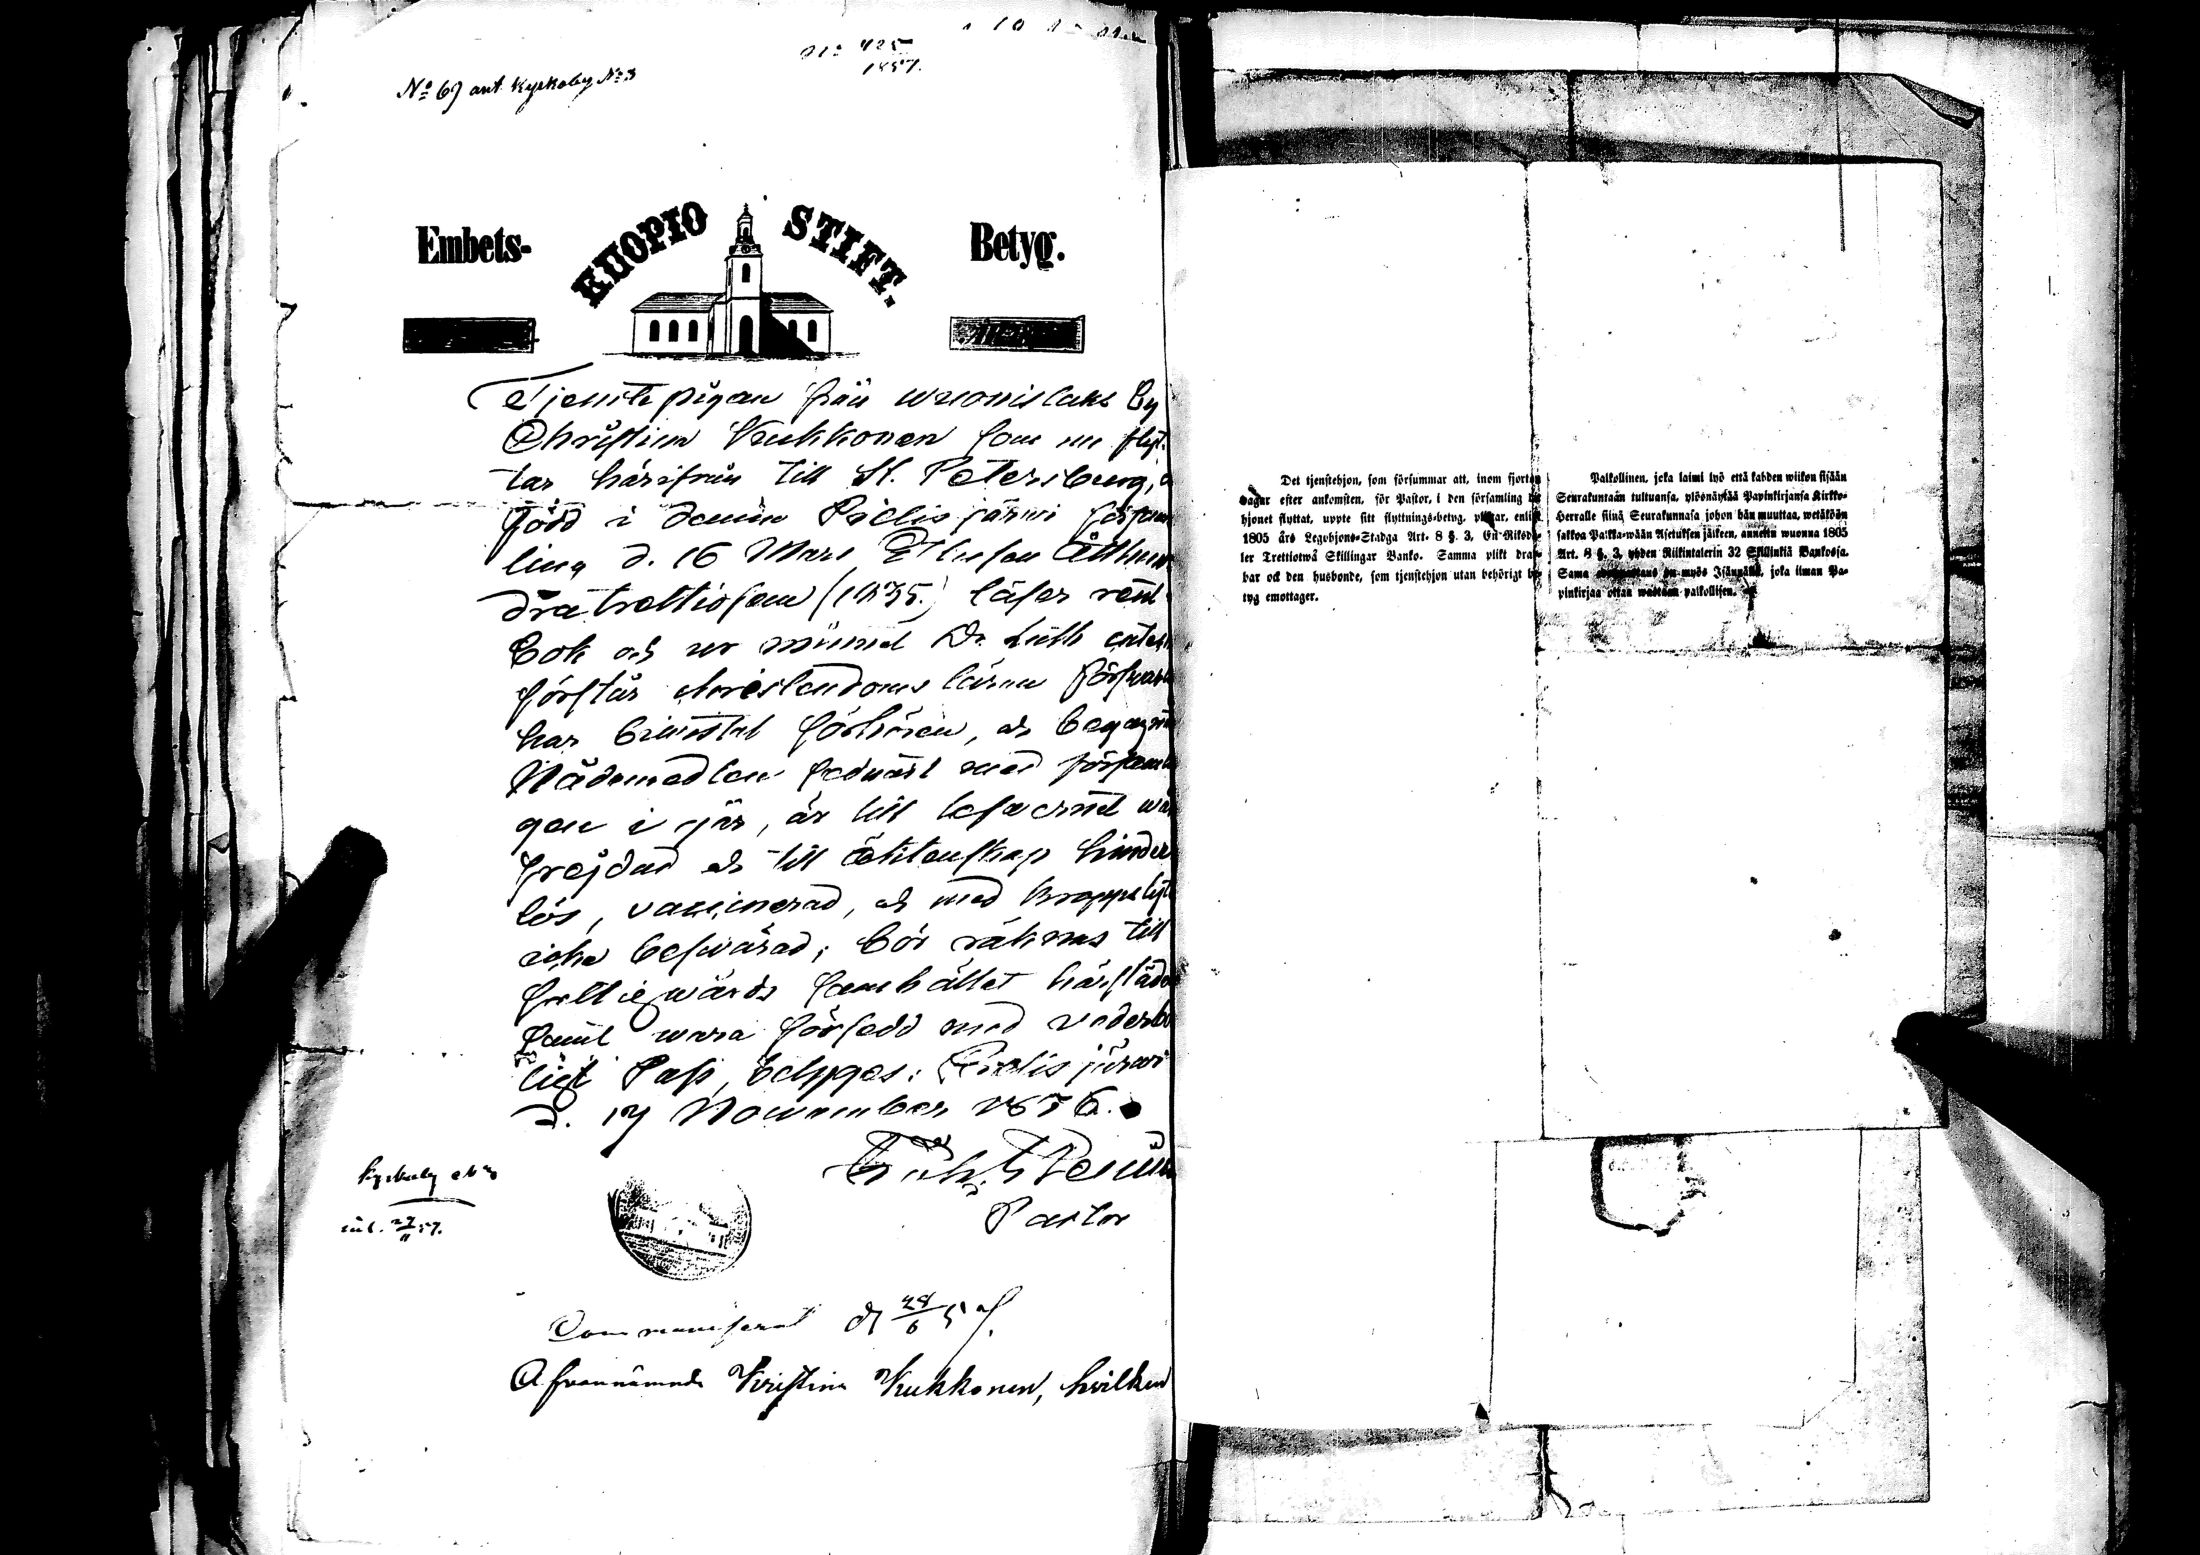 No 425
1857.
No 67 ant. Kyrkoby No 3
Embets- KUOPIO STIFT. Betyg.
Tjenstepigan från Wuonislaks By
Christina Kukkonen som nu flyt-
tar härifrån till St. Petersburg,
född i denna Pielisjärwi församl
ling d. 16 Mars Ettusen Åttahun
dratrettiofem (1835.) läser rent
bok och ur minnet Dr. Luth cates
förstår christendoms läran försvarl
har biwistat förhören, och begagnat
Nådemedlen sednast med församl
gen i går, är till lefvernet wäl
frejdad och till äktenskap hinder
lös, vaccinerad, och med kroppslyte
icke beswärad; bör räknas till
samhället härstädes
samt wara försedd med vederbö
ligt Pass, betygas: Pielisjärwi
d. 17 November 1856.
Pastor
Kyrkoby No 3
27/11 57.
Communicerat d 28/6 57.
Ofvannämnde Kristina Kukkonen, hvilken
Det tjenstehjon, som försummar att, inom fjorton
dagar efter ankomsten, för Pastor, i den församling dit
hjonet flyttat, uppte sitt flyttnings-betyg, pligtar, enligt
1805 års Legohjons-Stadga Art. 8 §. 3, En Riksda-
ler Trettiotwå Skillingar Banko. Samma plikt drab-
bar ock den husbonde, som tjenstehjon utan behörigt be-
tyg emottager.
Palkollinen, joka laimi lyö että kahden wiikon sisään
Seurakuntaan tultuansa, ylösnäyttää Papinkirjansa Kirkko-
Herralle siinä Seurakunnasa johon hän muuttaa, wetäköön
sakkoa Palkka-wään Asetuksen jälkeen, annettu wuonna 1805
Art. 8 §. 3, yhden Riikintalerin 32 Skillinkiä Bankosa.
Sama on myös Isännällä, joka ilman Pa-
pinkirjaa ottaa wastaan palkollisen.